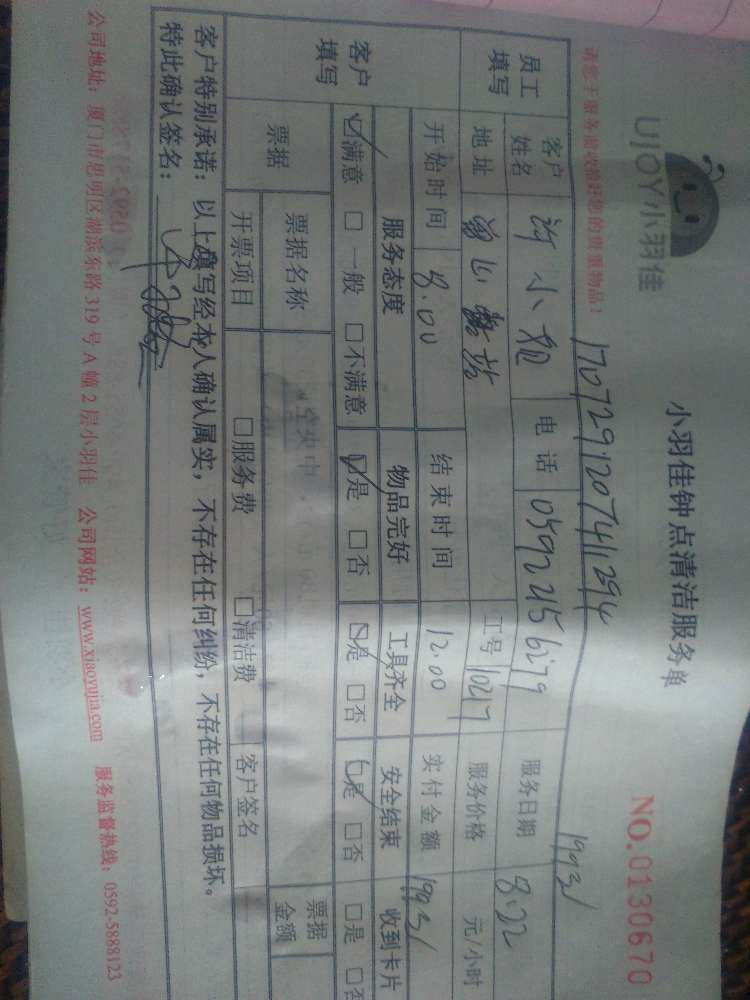 UJOY小羽佳
小羽佳钟点清洁服务单
NO.0130670
请您于服务前收检好您的贵重物品！
1707291207411294
1993/
员工填写
客户姓名 许小姐 电话 05922156279 服务日期 8.22
地址 工号 10217 服务价格 元/小时
开始时间 8.00 结束时间 12.00 实付金额 1993/
客户填写
服务态度 物品完好 工具齐全 安全结束 收到卡片
☑满意 □一般 □不满意 ☑是 □否 ☑是 □否 ☑是 □否 □是 □否
票据 票据名称 票据金额
开票项目 □服务费 □清洁费 客户签名
客户特别承诺：以上填写经本人确认属实，不存在任何纠纷，不存在任何物品损坏。
特此确认签名：
公司地址：厦门市思明区湖滨东路 319 号 A 幢 2 层小羽佳 公司网站：www.xiaoyujia.com 服务监督热线：0592-5888123